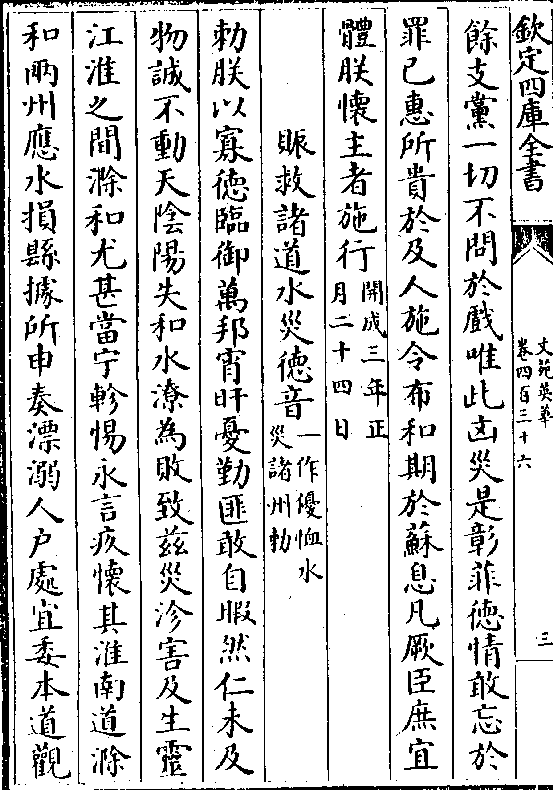 欽定四庫全書
文苑英華
卷四百三十六
三
餘支黨一切不問於戲唯此凶災是彰菲德情敢忘於
罪已惠所貴於及人施令布和期於蘇息凡厥臣庶宜
體朕懷主者施行開成三年正
月二十四日
賑救諸道水災徳音一作優恤水
災諸州勅
勅朕以寡徳臨御萬邦宵旰憂勤匪敢自暇然仁未及
物誠不動天陰陽失和水潦為敗致茲災沴害及生靈
江淮之間滁和尤甚當宁軫惕永言疚懷其淮南道滁
和兩州應水損縣據所申奏漂溺人户處宜委本道觀